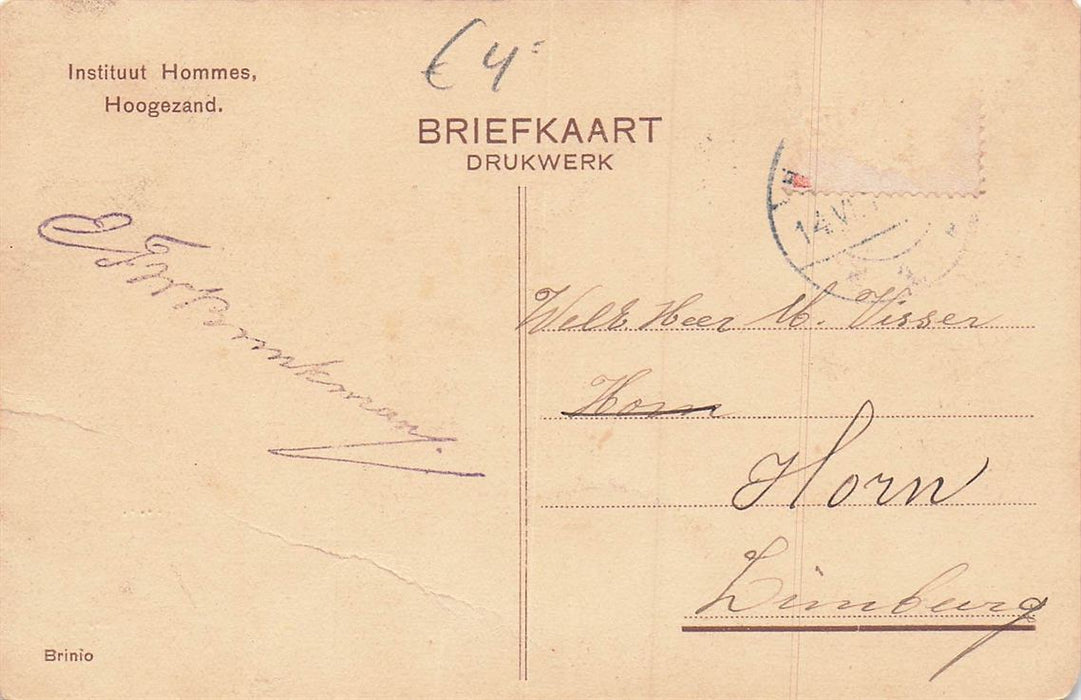 Instituut Hommes,
Hoogezand.
€ 4=
BRIEFKAART
DRUKWERK
14.VI
WelE Heer M. Visser
Horn
Horn
Limburg
Brinio